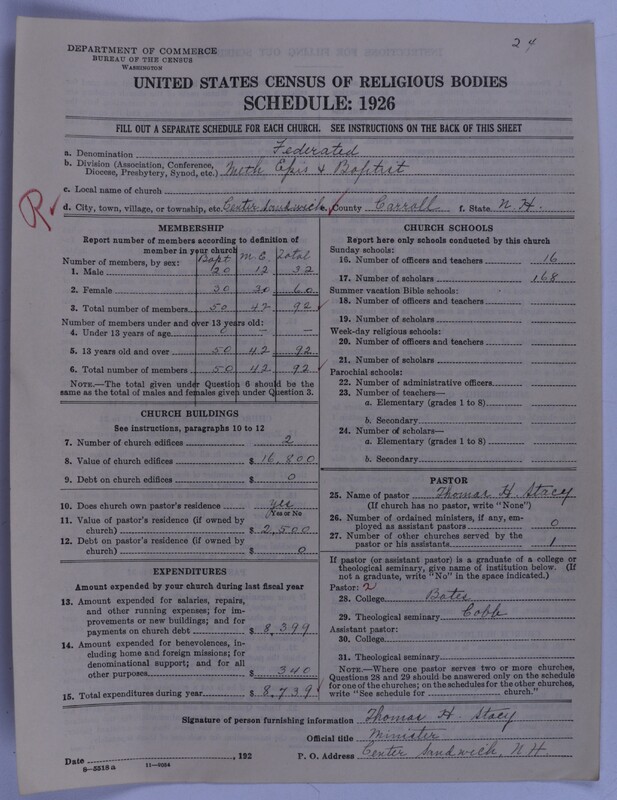 24
DEPARTMENT OF COMMERCE
BUREAU OF THE CENSUS
WASHINGTON
UNITED STATES CENSUS OF RELIGIOUS BODIES
SCHEDULE: 1926
FILL OUT A SEPARATE SCHEDULE FOR EACH CHURCH. SEE INSTRUCTIONS ON THE BACK OF THIS SHEET
a. Denomination Federated
b. Division (Association, Conference, Diocese, Presbytery, Synod, etc.) Meth Epis & Baptist
c. Local name of church
R
d. City, town, village, or township, etc. Center Sandwich e. County Carroll f. State N.H.
MEMBERSHIP
Report number of members according to definition of
member in your church
Number of members, by sex: Bapt M.E. Total
1. Male 20 12 32
2. Female 30 30 60
3. Total number of members 50 42 92
Number of members under and over 13 years old:
4. Under 13 years of age — — —
5. 13 years old and over 50 42 92
6. Total number of members 50 42 92
NOTE.—The total given under Question 6 should be the
same as the total of males and females given under Question 3.
CHURCH BUILDINGS
See instructions, paragraphs 10 to 12
7. Number of church edifices 2
8. Value of church edifices $ 16,800
9. Debt on church edifices $ 0
10. Does church own pastor's residence yes
Yes or No
11. Value of pastor's residence (if owned by
church) $ 2,500
12. Debt on pastor's residence (if owned by
church) $ 0
EXPENDITURES
Amount expended by your church during last fiscal year
13. Amount expended for salaries, repairs,
and other running expenses; for im-
provements or new buildings; and for
payments on church debt $ 8,399
14. Amount expended for benevolences, in-
cluding home and foreign missions; for
denominational support; and for all
other purposes $ 340
15. Total expenditures during year $ 8,739
CHURCH SCHOOLS
Report here only schools conducted by this church
Sunday schools:
16. Number of officers and teachers 16
17. Number of scholars 168
Summer vacation Bible schools:
18. Number of officers and teachers
19. Number of scholars
Week-day religious schools:
20. Number of officers and teachers
21. Number of scholars
Parochial schools:
22. Number of administrative officers
23. Number of teachers—
a. Elementary (grades 1 to 8)
b. Secondary
24. Number of scholars—
a. Elementary (grades 1 to 8)
b. Secondary
PASTOR
25. Name of pastor Thomas H. Stacy
(If church has no pastor, write "None")
26. Number of ordained ministers, if any, em-
ployed as assistant pastors 0
27. Number of other churches served by the
pastor or his assistants 1
If pastor (or assistant pastor) is a graduate of a college or
theological seminary, give name of institution below. (If
not a graduate, write "No" in the space indicated.)
Pastor: 2
28. College Bates
29. Theological seminary Cobb
Assistant pastor:
30. College
31. Theological seminary
NOTE.—Where one pastor serves two or more churches,
Questions 28 and 29 should be answered only on the schedule
for one of the churches; on the schedules for the other churches,
write "See schedule for church."
Signature of person furnishing information Thomas H Stacy
Official title Minister
Date , 192 P. O. Address Center Sandwich, N H
8—5518a 11—9024